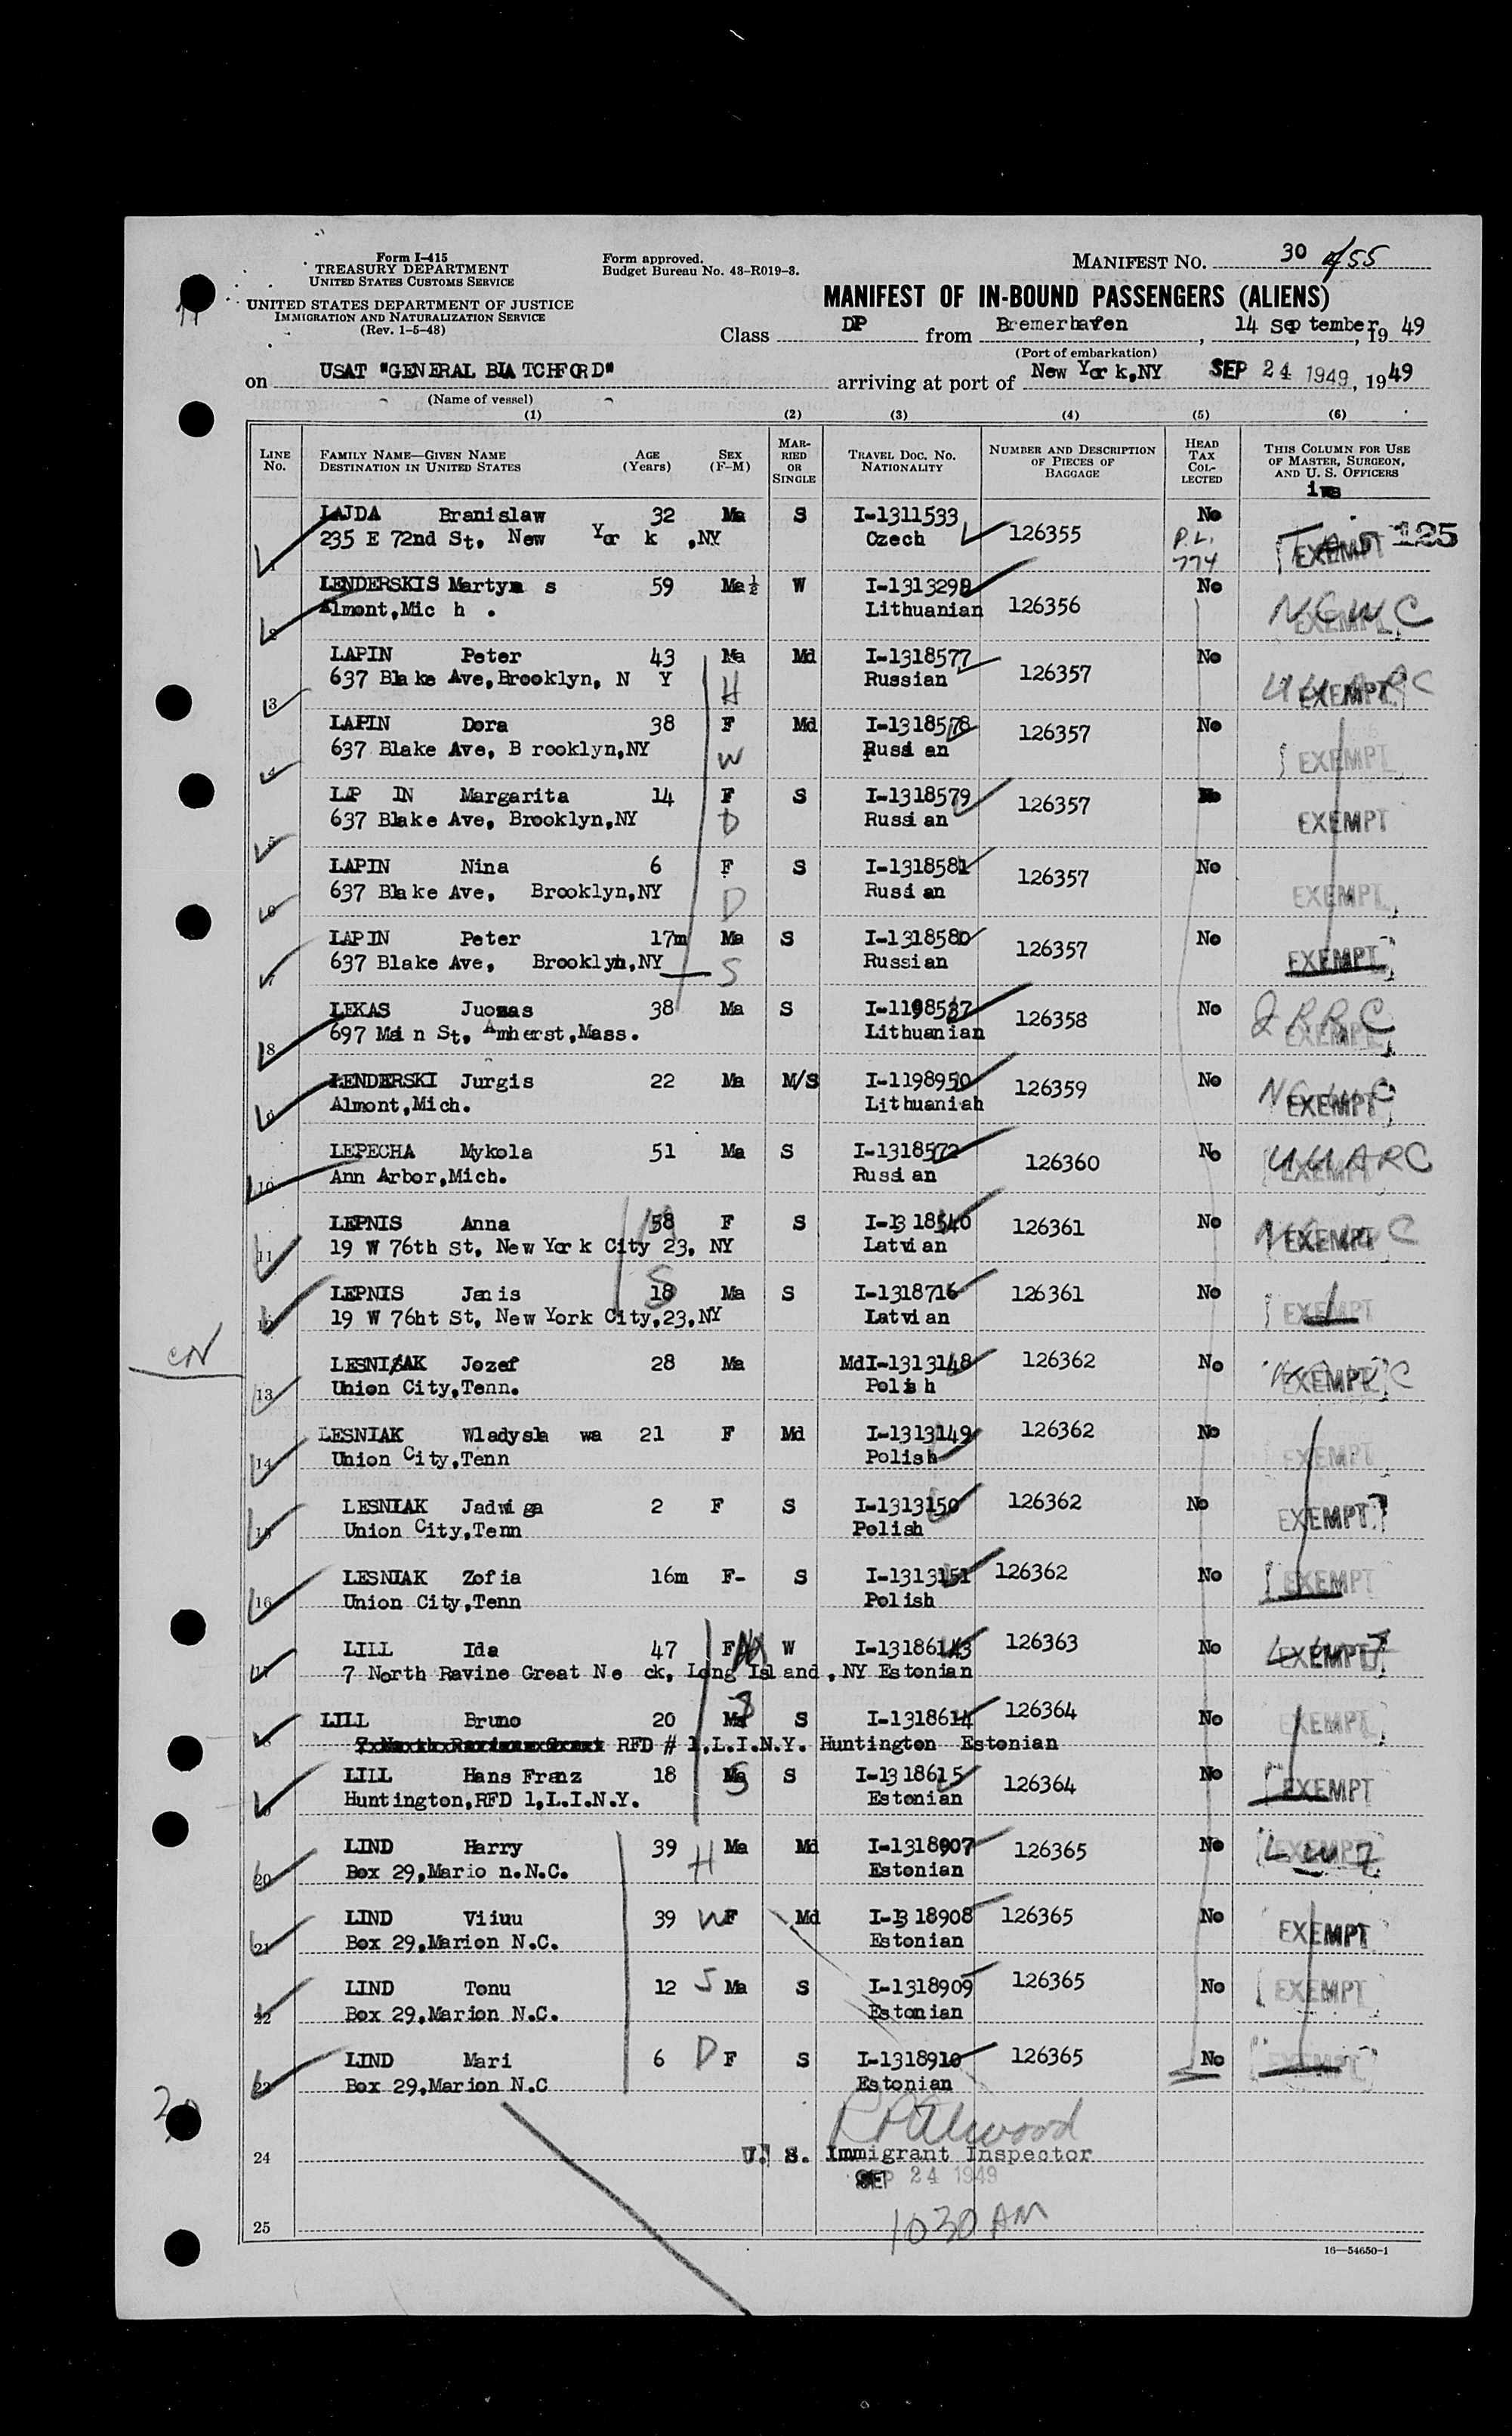 Form I-415
TREASURY DEPARTMENT
UNITED STATES CUSTOMS SERVICE
UNITED STATES DEPARTMENT OF JUSTICE
IMMIGRATION AND NATURALIZATION SERVICE
(Rev. 1-5-48)
Form approved.
Budget Bureau No. 43-R019-3.
MANIFEST NO. 30 of 55
MANIFEST OF IN-BOUND PASSENGERS (ALIENS)
Class DP from Bremerhaven, 14 Sep tember, 19 49
(Port of embarkation)
on USAT "GENERAL BLATCHFORD" arriving at port of New York,NY SEP 24 1949, 1949
(Name of vessel)
(1) (2) (3) (4) (5) (6)
LINE No. FAMILY NAME—GIVEN NAME DESTINATION IN UNITED STATES AGE (Years) SEX (F-M) MARRIED OR SINGLE TRAVEL DOC. NO. NATIONALITY NUMBER AND DESCRIPTION OF PIECES OF BAGGAGE HEAD TAX COLLECTED THIS COLUMN FOR USE OF MASTER, SURGEON, AND U. S. OFFICERS
LAJDA Branislaw 32 Ma S I-1311533 126355 No EXEMPT 125
235 E 72nd St, New Yor k ,NY Czech P.L. 774
2 LENDERSKIS Martyn s 59 Ma W I-1313298 126356 No EXEMPT NCWC
Almont,Mic h . Lithuanian
3 LAPIN Peter 43 Ma H Md I-1318577 126357 No EXEMPT UUARC
637 Blake Ave,Brooklyn, N Y Russian
4 LAPIN Dora 38 F W Md I-1318578 126357 No EXEMPT
637 Blake Ave, B rooklyn,NY Russi an
5 LAP IN Margarita 14 F D S I-1318579 126357 No EXEMPT
637 Blake Ave, Brooklyn,NY Russi an
6 LAPIN Nina 6 F D S I-1318581 126357 No EXEMPT
637 Blake Ave, Brooklyn,NY Russi an
7 LAPIN Peter 17m Ma S S I-1318580 126357 No EXEMPT
637 Blake Ave, Brooklyn,NY Russian
8 LEKAS Juozas 38 Ma S I-1198537 126358 No EXEMPT
697 Mai n St, Amherst,Mass. Lithuanian
9 LENDERSKI Jurgis 22 Ma M/S I-1198950 126359 No EXEMPT NCWC
Almont,Mich. Lithuanian
10 LEPECHA Mykola 51 Ma S I-1318572 126360 No EXEMPT UUARC
Ann Arbor,Mich. Russi an
11 LEPNIS Anna 58 M F S I-13 18540 126361 No EXEMPT
19 W 76th St, New York City 23, NY Latvian
12 LEPNIS Janis 18 S Ma S I-1318716 126361 No EXEMPT
19 W 76ht St, New York City,23,NY Latvian
CN
13 LESNIAK Jozef 28 Ma Md I-1313148 126362 No EXEMPT
Union City,Tenn. Polish
14 LESNIAK Wladysla wa 21 F Md I-1313149 126362 No EXEMPT
Union City,Tenn Polish
15 LESNIAK Jadwiga 2 F S I-1313150 126362 No EXEMPT
Union City,Tenn Polish
16 LESNIAK Zofia 16m F- S I-1313151 126362 No EXEMPT
Union City,Tenn Polish
17 LILL Ida 47 F M W I-1318613 126363 No EXEMPT
7 North Ravine Great Ne ck, Long Island, NY Estonian
18 LILL Bruno 20 Ma S S I-1318614 126364 No EXEMPT
RFD # 1,L.I.N.Y. Huntington Estonian
19 LILL Hans Franz 18 Ma S S I-13 18615 126364 No EXEMPT
Huntington,RFD 1,L.I.N.Y. Estonian
20 LIND Harry 39 H Ma Md I-1318907 126365 No EXEMPT
Box 29,Mario n.N.C. Estonian
21 LIND Viiuu 39 W F Md I-13 18908 126365 No EXEMPT
Box 29,Marion N.C. Estonian
22 LIND Tonu 12 S Ma S I-1318909 126365 No EXEMPT
Box 29,Marion N.C. Estonian
23 LIND Mari 6 D F S I-1318910 126365 No EXEMPT
Box 29,Marion N.C Estonian
24 U. S. Immigrant Inspector
SEP 24 1949
1030 AM
25
16—54650-1